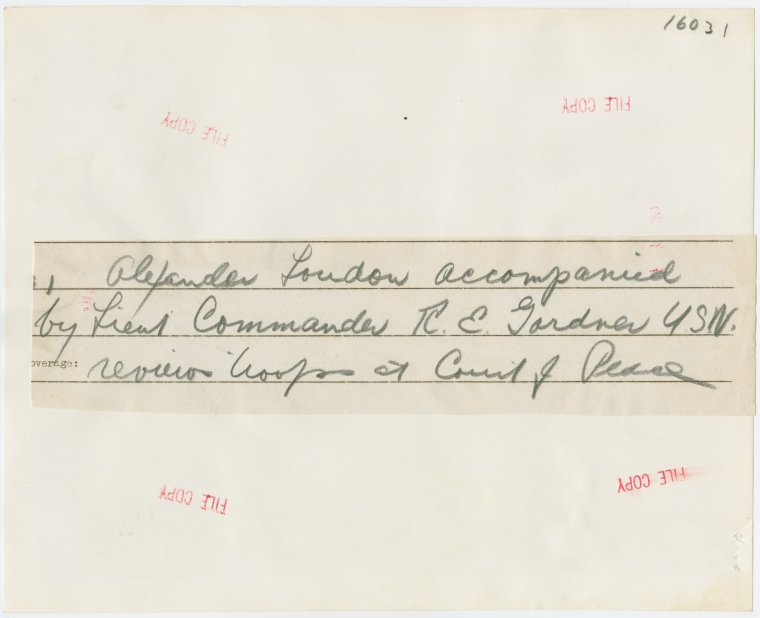 16031
FILE COPY
FILE COPY
Alexander Loudon accompanied
by Lieut Commander R. E. Gardner USN.
overage: reviews troops at Court of Peace
FILE COPY
FILE COPY